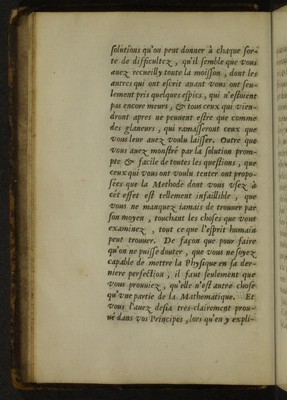 solutions qu'on peut donner à chaque sor-
te de difficultez, qu'il semble que vous
auez recueilly toute la moisson, dont les
autres qui ont escrit auant vous ont seu-
lement pris quelques espics, qui n'estoient
pas encore meurs, & tous ceux qui vien-
dront apres ne peuuent estre que comme
des glaneurs, qui ramasseront ceux que
vous leur auez voulu laisser. Outre que
vous auez monstré par la solution prom-
pte & facile de toutes les questions, que
ceux qui vous ont voulu tenter ont propo-
sées que la Methode dont vous vsez à
cét effet est tellement infaillible, que
vous ne manquez iamais de trouuer par
son moyen, touchant les choses que vous
examinez, tout ce que l'esprit humain
peut trouuer. De façon que pour faire
qu'on ne puisse douter, que vous ne soyez
capable de mettre la Physique en sa der-
niere perfection, il faut seulement que
vous prouuiez, qu'elle n'est autre chose
qu'vne partie de la Mathematique. Et
vous l'auez desia tres-clairement prou-
ué dans vos Principes, lors qu'en y expli-